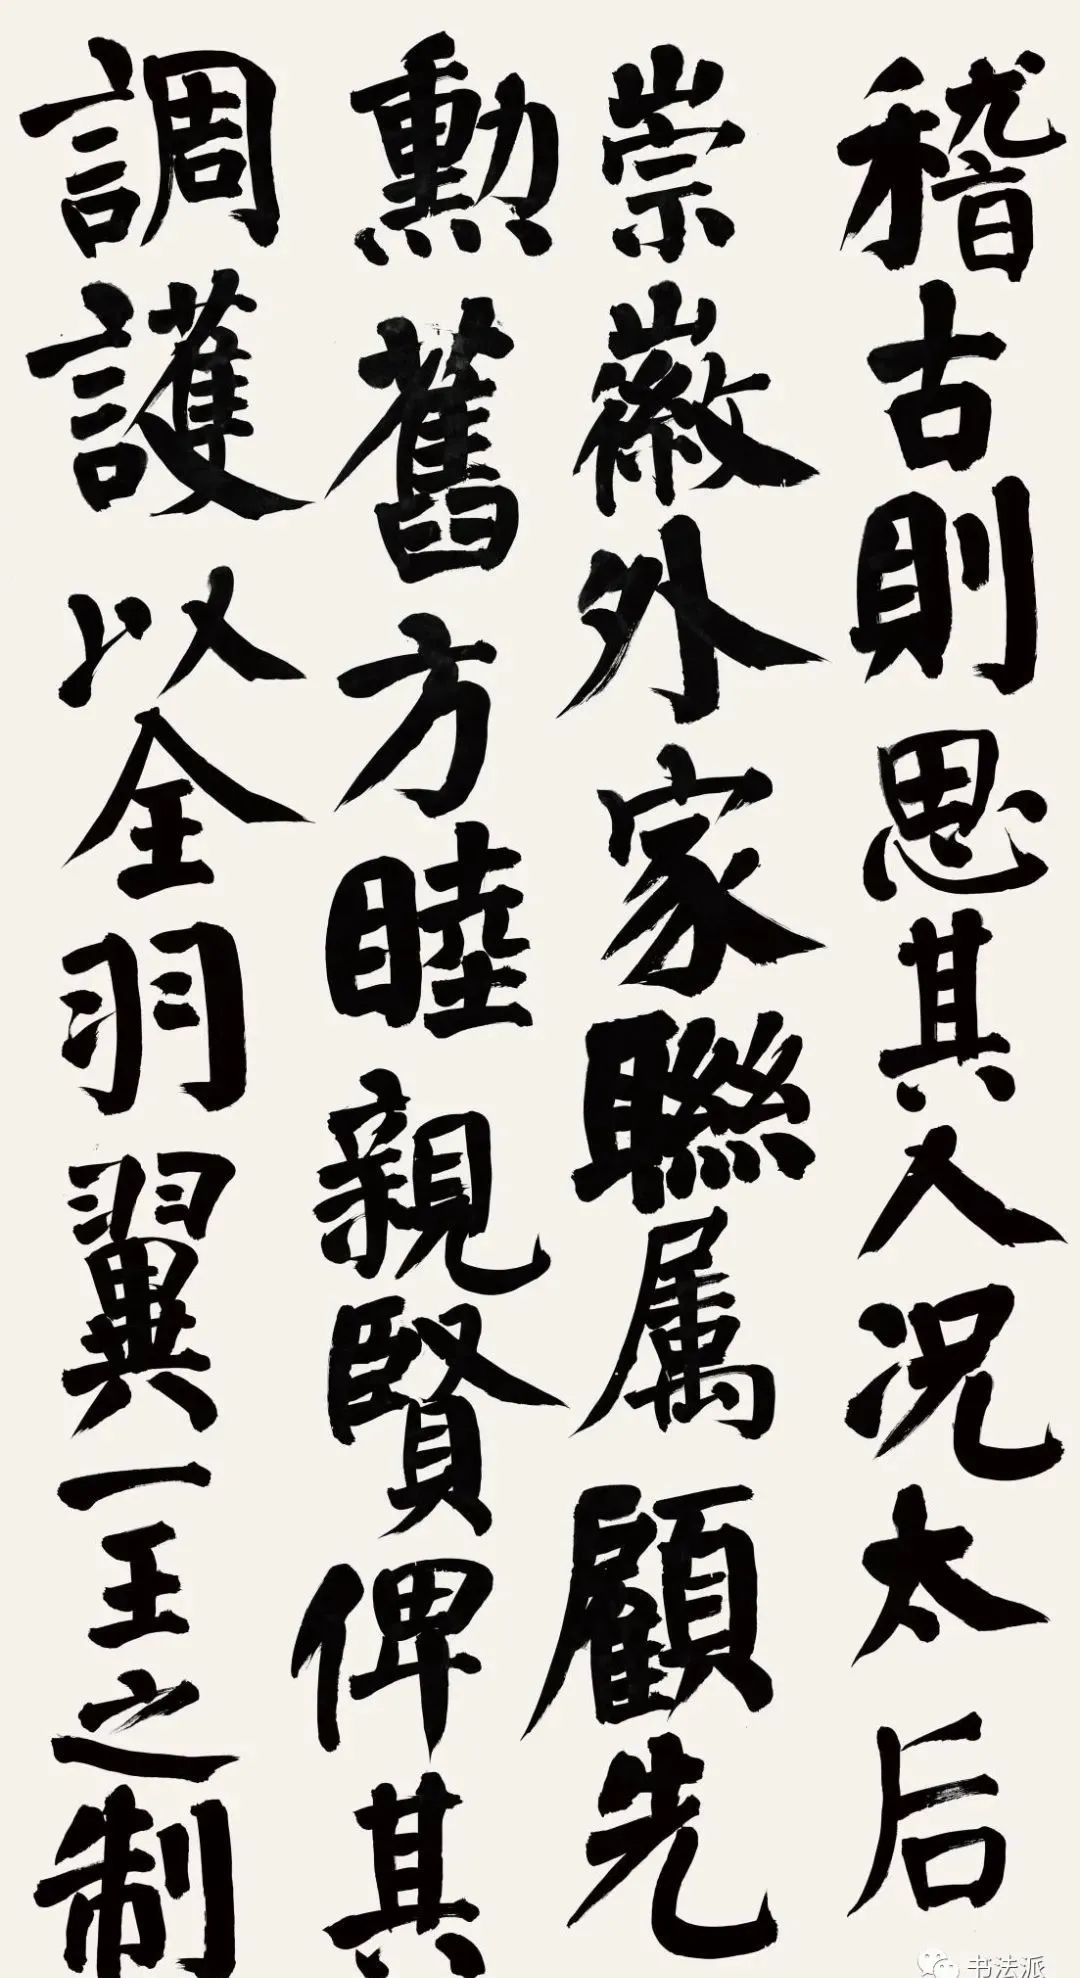 稽古則思其人况太后
崇徽外家聯属顧先
勲舊方睦親賢俾其
調護以全羽翼一王之制
书法派